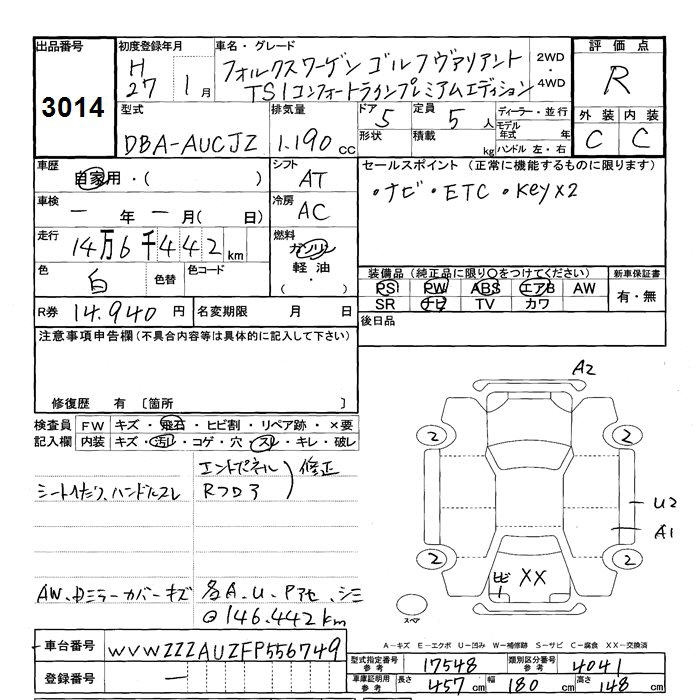 出品番号 初度登録年月 車名・グレード 評価点
3014 H27 1月 フォルクスワーゲン ゴルフヴァリアント 2WD R
TSIコンフォートラインプレミアムエディション ・4WD
型式 排気量 ドア 5 定員 5人 ディーラー・並行 外装 内装
DBA-AUCJZ 1.190cc 形状 積載 kg モデル年式 年 C C
ハンドル 左・右
車歴 自家用・( ) シフト AT セールスポイント (正常に機能するものに限ります)
車検 一年一月(日) 冷房 AC ・ナビ・ETC・Keyx2
走行 14万6千442km 燃料 ガソリン
軽油
(・)
色 白 色替 色コード 装備品(純正品に限り○をつけてください) 新車保証書
PS PW ABS エアB AW 有・無
R券 14.940円 名変期限 月 日 SR ナビ TV カワ
注意事項申告欄(不具合内容等は具体的に記入して下さい) 後日品
修復歴 有 〔箇所 〕
検査員 FW キズ・飛石・ヒビ割・リペア跡・×要
記入欄 内装 キズ・汚れ・コゲ・穴・スレ・キレ・破レ
エンドパネル
シートヘたり、ハンドルスレ Rフロア ) 修正
AW、ドミラーカバーキズ 各A.U.Pアセ、シミ
@146.442km
A2
2 2
U2
A1
2 2
XX
スペア
A-キズ E-エクボ U-凹み W-補修跡 S-サビ C-腐食 XX-交換済
車台番号 WVWZZZAUZFP556749
型式指定番号 参考 17548 類別区分番号 参考 4041
登録番号 一
車庫証明用 参考 長さ 457cm 幅 180cm 高さ 148cm